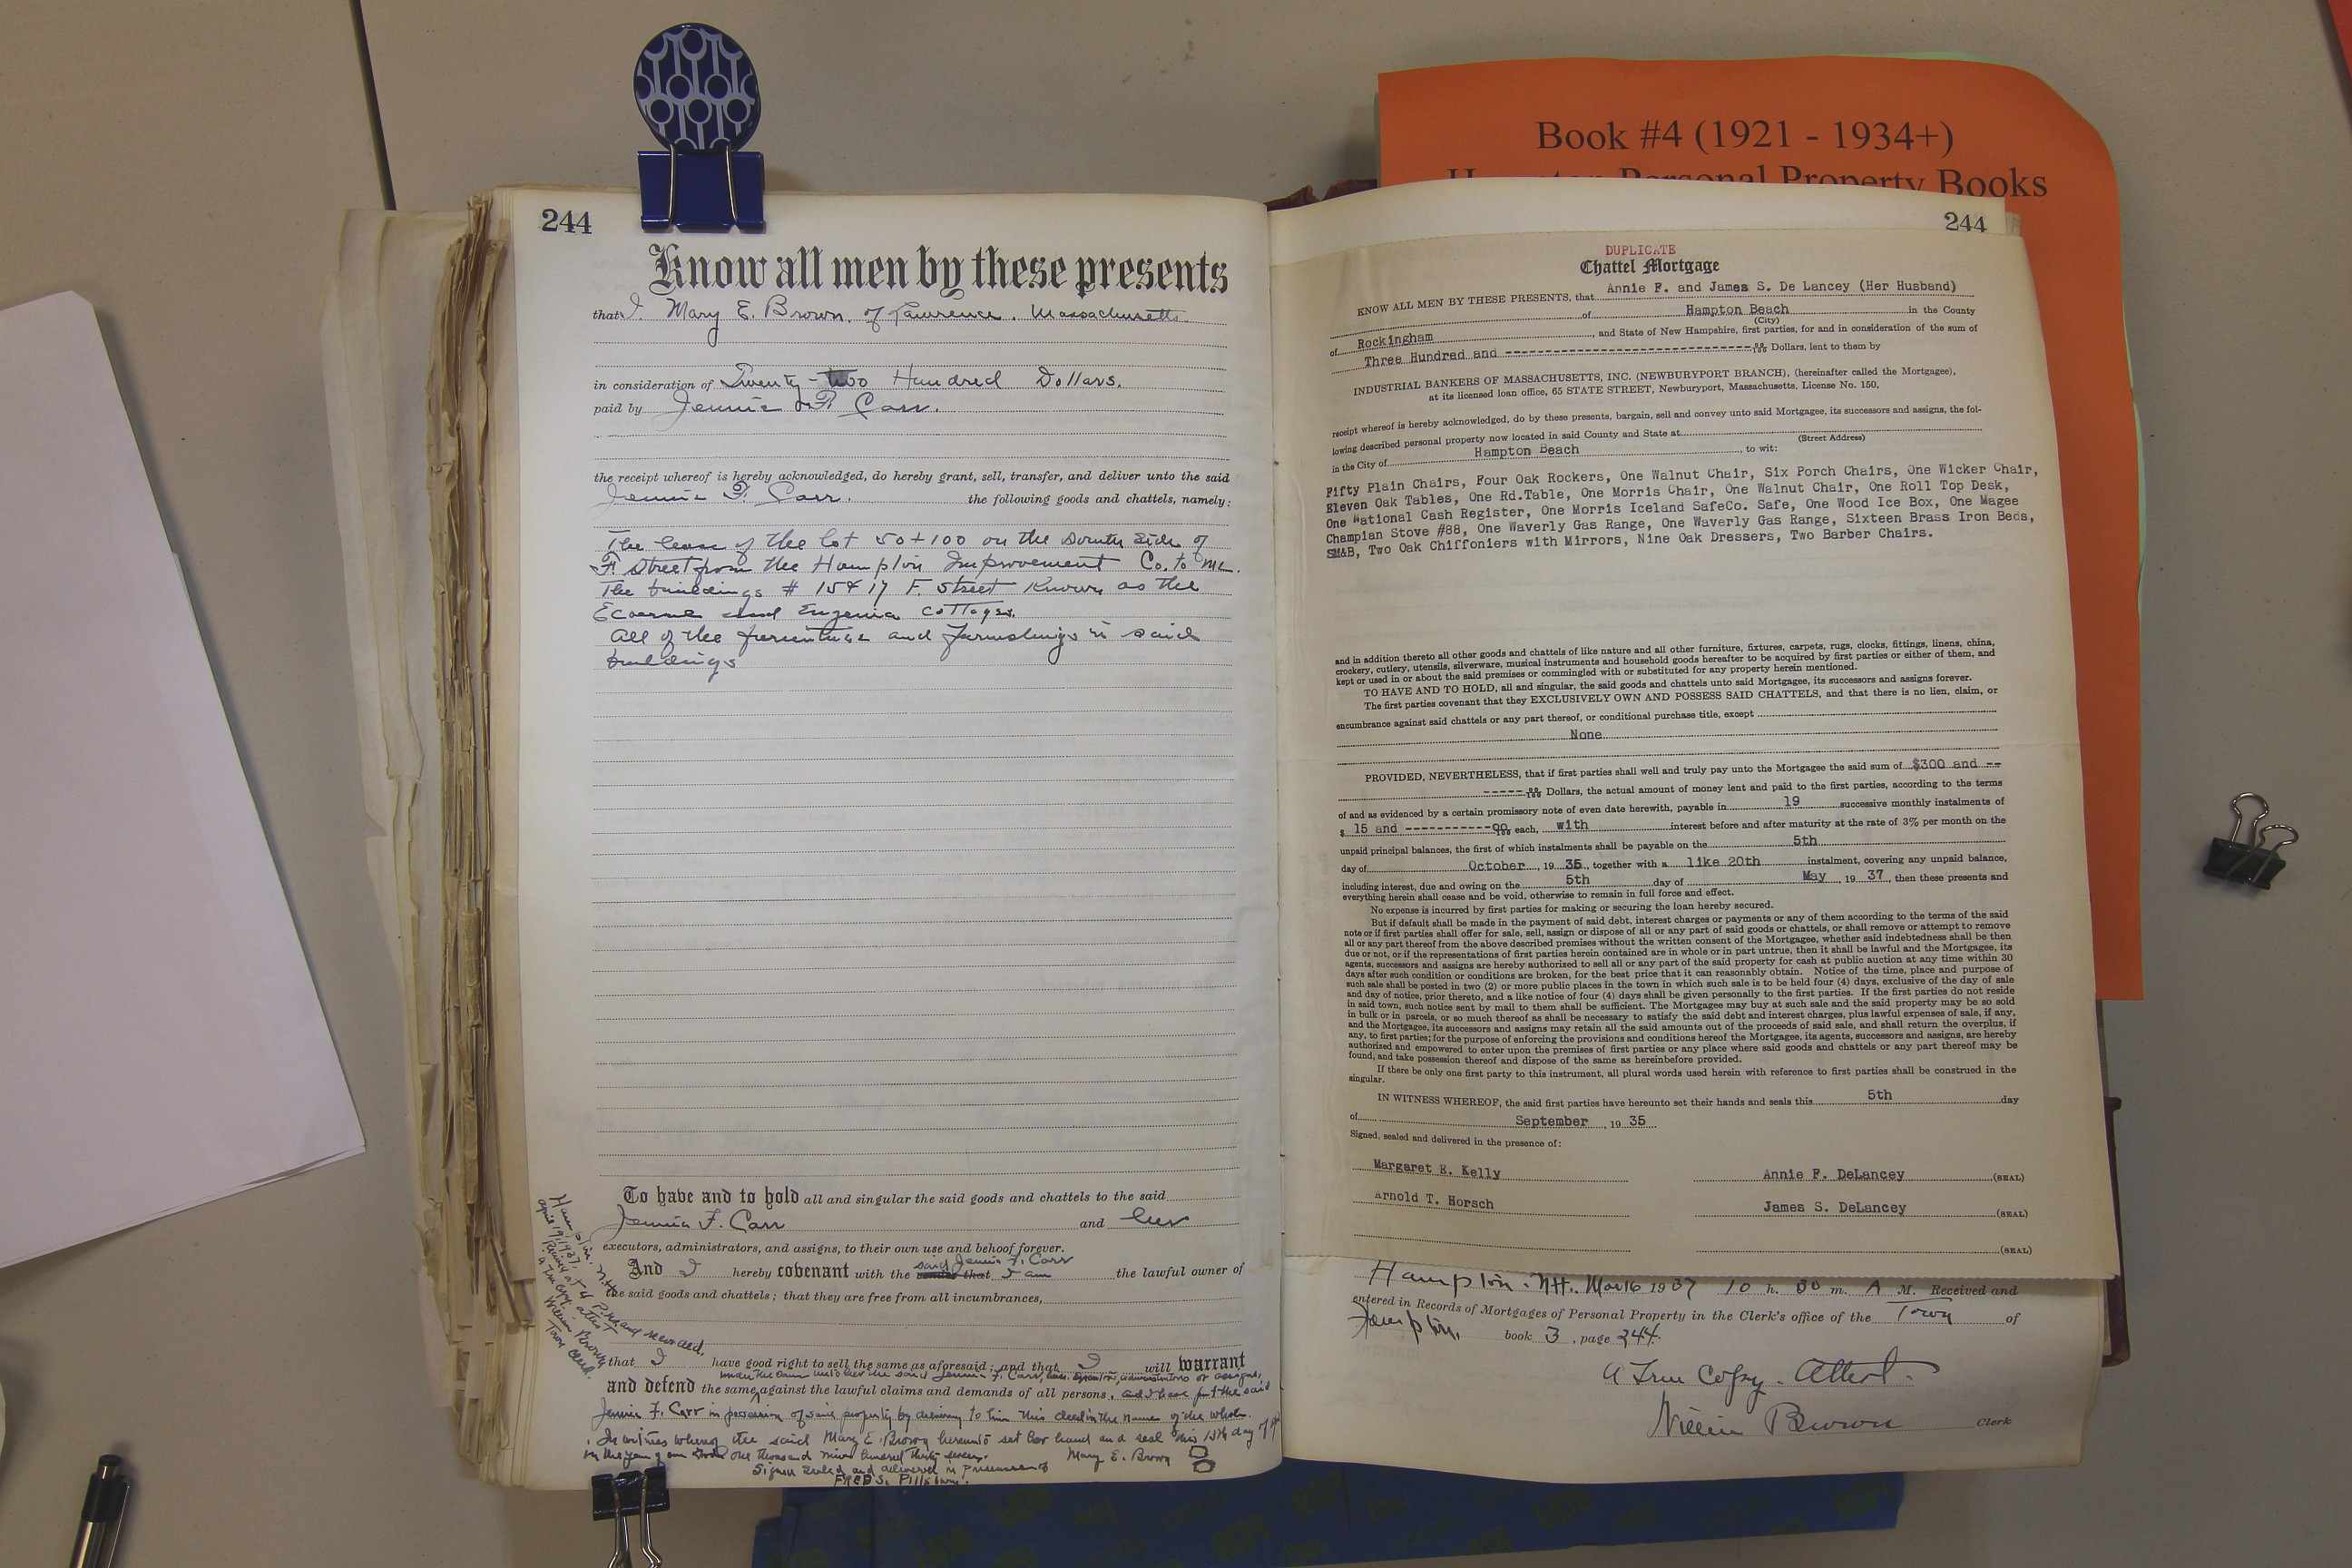 Book #4 (1921 - 1934+)
Personal Property Books
244
Know all men by these presents
that I Mary E. Brown of Lawrence, Massachusetts
in consideration of Twenty-two Hundred Dollars.
paid by Jennie F. Carr.
the receipt whereof is hereby acknowledged, do hereby grant, sell, transfer, and deliver unto the said
Jennie F. Carr. the following goods and chattels, namely:
The lease of the lot 50+100 on the South side of
F. Street from the Hampton Improvement Co. to me.
The buildings # 15 & 17 F. Street Known as the
and Eugenia cottages.
All of the furniture and furnishings in said
buildings
To have and to hold all and singular the said goods and chattels to the said
Jennie F. Carr and her
executors, administrators, and assigns, to their own use and behoof forever.
said Jennie F. Carr
And I hereby covenant with the vendee that I am the lawful owner of
the said goods and chattels; that they are free from all incumbrances,
that I have good right to sell the same as aforesaid; and that I will warrant
under the same unto her the said Jennie F. Carr, her executors, administrators or assigns,
and defend the same against the lawful claims and demands of all persons, and I have put the said
Jennie F. Carr in possession of said property by delivering to him this deed in the name of the whole.
In witness whereof the said Mary E. Brown hereunto set her hand and seal this 15th day of
in the year of our Lord one thousand nine hundred thirty seven. Mary E. Brown
Signed sealed and delivered in presence of
FRED S. Pillsbury.
Hampton, N.H.
April 19, 1937.
Received at 4 P.M. and recorded.
a True Copy. attest
William Brown
Town Clerk.
244
DUPLICATE
Chattel Mortgage
KNOW ALL MEN BY THESE PRESENTS, that Annie F. and James S. De Lancey (Her Husband)
of Hampton Beach in the County
(City)
of Rockingham, and State of New Hampshire, first parties, for and in consideration of the sum of
Three Hundred and ------------------------------00/100 Dollars, lent to them by
INDUSTRIAL BANKERS OF MASSACHUSETTS, INC. (NEWBURYPORT BRANCH), (hereinafter called the Mortgagee),
at its licensed loan office, 65 STATE STREET, Newburyport, Massachusetts, License No. 150,
receipt whereof is hereby acknowledged, do by these presents, bargain, sell and convey unto said Mortgagee, its successors and assigns, the fol-
lowing described personal property now located in said County and State at
(Street Address)
in the City of Hampton Beach, to wit:
Fifty Plain Chairs, Four Oak Rockers, One Walnut Chair, Six Porch Chairs, One Wicker Chair,
Eleven Oak Tables, One Rd.Table, One Morris Chair, One Walnut Chair, One Roll Top Desk,
One National Cash Register, One Morris Iceland SafeCo. Safe, One Wood Ice Box, One Magee
Champian Stove #88, One Waverly Gas Range, One Waverly Gas Range, Sixteen Brass Iron Beds,
SM&B, Two Oak Chiffoniers with Mirrors, Nine Oak Dressers, Two Barber Chairs.
and in addition thereto all other goods and chattels of like nature and all other furniture, fixtures, carpets, rugs, clocks, fittings, linens, china,
crockery, cutlery, utensils, silverware, musical instruments and household goods hereafter to be acquired by first parties or either of them, and
kept or used in or about the said premises or commingled with or substituted for any property herein mentioned.
TO HAVE AND TO HOLD, all and singular, the said goods and chattels unto said Mortgagee, its successors and assigns forever.
The first parties covenant that they EXCLUSIVELY OWN AND POSSESS SAID CHATTELS, and that there is no lien, claim, or
encumbrance against said chattels or any part thereof, or conditional purchase title, except
None
PROVIDED, NEVERTHELESS, that if first parties shall well and truly pay unto the Mortgagee the said sum of $300 and --
-----00/100 Dollars, the actual amount of money lent and paid to the first parties, according to the terms
of and as evidenced by a certain promissory note of even date herewith, payable in 19 successive monthly instalments of
$ 15 and -----------00/100 each, with interest before and after maturity at the rate of 3% per month on the
unpaid principal balances, the first of which instalments shall be payable on the 5th
day of October, 19 35, together with a like 20th instalment, covering any unpaid balance,
including interest, due and owing on the 5th day of May, 19 37, then these presents and
everything herein shall cease and be void, otherwise to remain in full force and effect.
No expense is incurred by first parties for making or securing the loan hereby secured.
But if default shall be made in the payment of said debt, interest charges or payments or any of them according to the terms of the said
note or if first parties shall offer for sale, sell, assign or dispose of all or any part of said goods or chattels, or shall remove or attempt to remove
all or any part thereof from the above described premises without the written consent of the Mortgagee, whether said indebtedness shall be then
due or not, or if the representations of first parties herein contained are in whole or in part untrue, then it shall be lawful and the Mortgagee, its
agents, successors and assigns are hereby authorized to sell all or any part of the said property for cash at public auction at any time within 30
days after such condition or conditions are broken, for the best price that it can reasonably obtain. Notice of the time, place and purpose of
such sale shall be posted in two (2) or more public places in the town in which such sale is to be held four (4) days, exclusive of the day of sale
and day of notice, prior thereto, and a like notice of four (4) days shall be given personally to the first parties. If the first parties do not reside
in said town, such notice sent by mail to them shall be sufficient. The Mortgagee may buy at such sale and the said property may be so sold
in bulk or in parcels, or so much thereof as shall be necessary to satisfy the said debt and interest charges, plus lawful expenses of sale, if any,
and the Mortgagee, its successors and assigns may retain all the said amounts out of the proceeds of said sale, and shall return the overplus, if
any, to first parties; for the purpose of enforcing the provisions and conditions hereof the Mortgagee, its agents, successors and assigns, are hereby
authorized and empowered to enter upon the premises of first parties or any place where said goods and chattels or any part thereof may be
found, and take possession thereof and dispose of the same as hereinbefore provided.
If there be only one first party to this instrument, all plural words used herein with reference to first parties shall be construed in the
singular.
IN WITNESS WHEREOF, the said first parties have hereunto set their hands and seals this 5th day
of September, 19 35
Signed, sealed and delivered in the presence of:
Margaret E. Kelly Annie F. DeLancey (SEAL)
Arnold T. Horsch James S. DeLancey (SEAL)
(SEAL)
Hampton. N.H. Mar 16 1937 10 h. 30 m. A M. Received and
entered in Records of Mortgages of Personal Property in the Clerk's office of the Town of
Hampton. book 3, page 244.
A True Copy. Attest.
William Brown Clerk